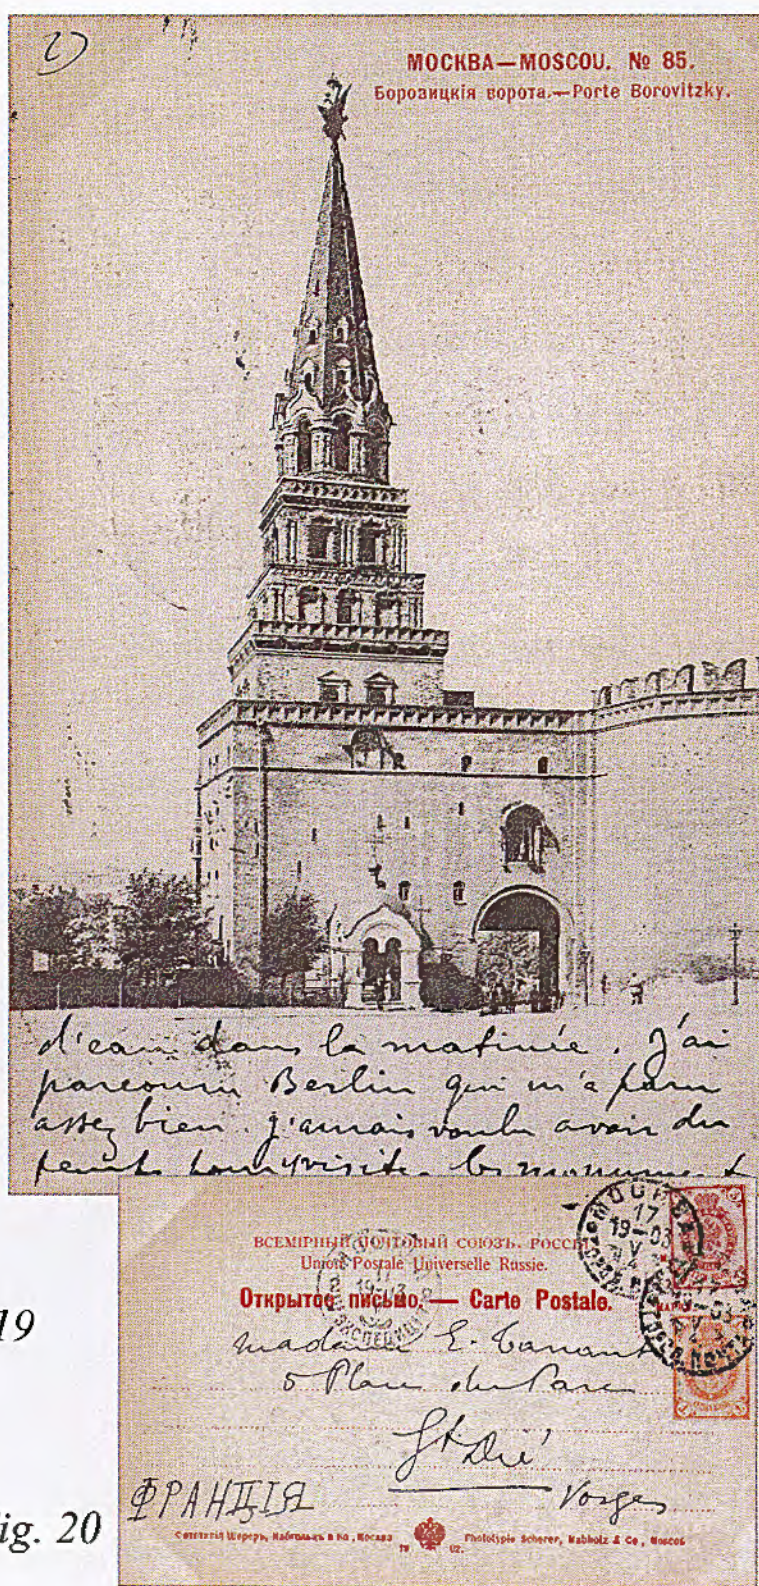 2)
МОСКВА—MOSCOU. № 85.
Боровицкія ворота.—Porte Borovitzky.
d'eau dans la matinée. J'ai
parcouru Berlin qui m'a paru
assez bien. j'aurais voulu avoir du
temps visiter les monument
19
ВСЕМІРНЫЙ ПОЧТОВЫЙ СОЮЗЪ. РОССІЯ
Union Postale Universelle Russie.
Открытое письмо. — Carte Postale.
МОСКВА
17
19-03
ЭКСПЕДИЦІЯ
ПОЧТА
madame E.
5 Place du Parc
St Dié
Vosges
ФРАНЦІЯ
ig. 20
Фототипія Шереръ, Набгольцъ и Ко, Москва
19 02.
Phototypie Scherer, Nabholz & Co, Moscou